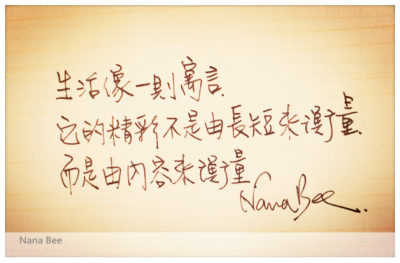 生活像一則寓言,
它的精彩不是由長短來衡量,
而是由內容來衡量.
Nana Bee.
Nana Bee